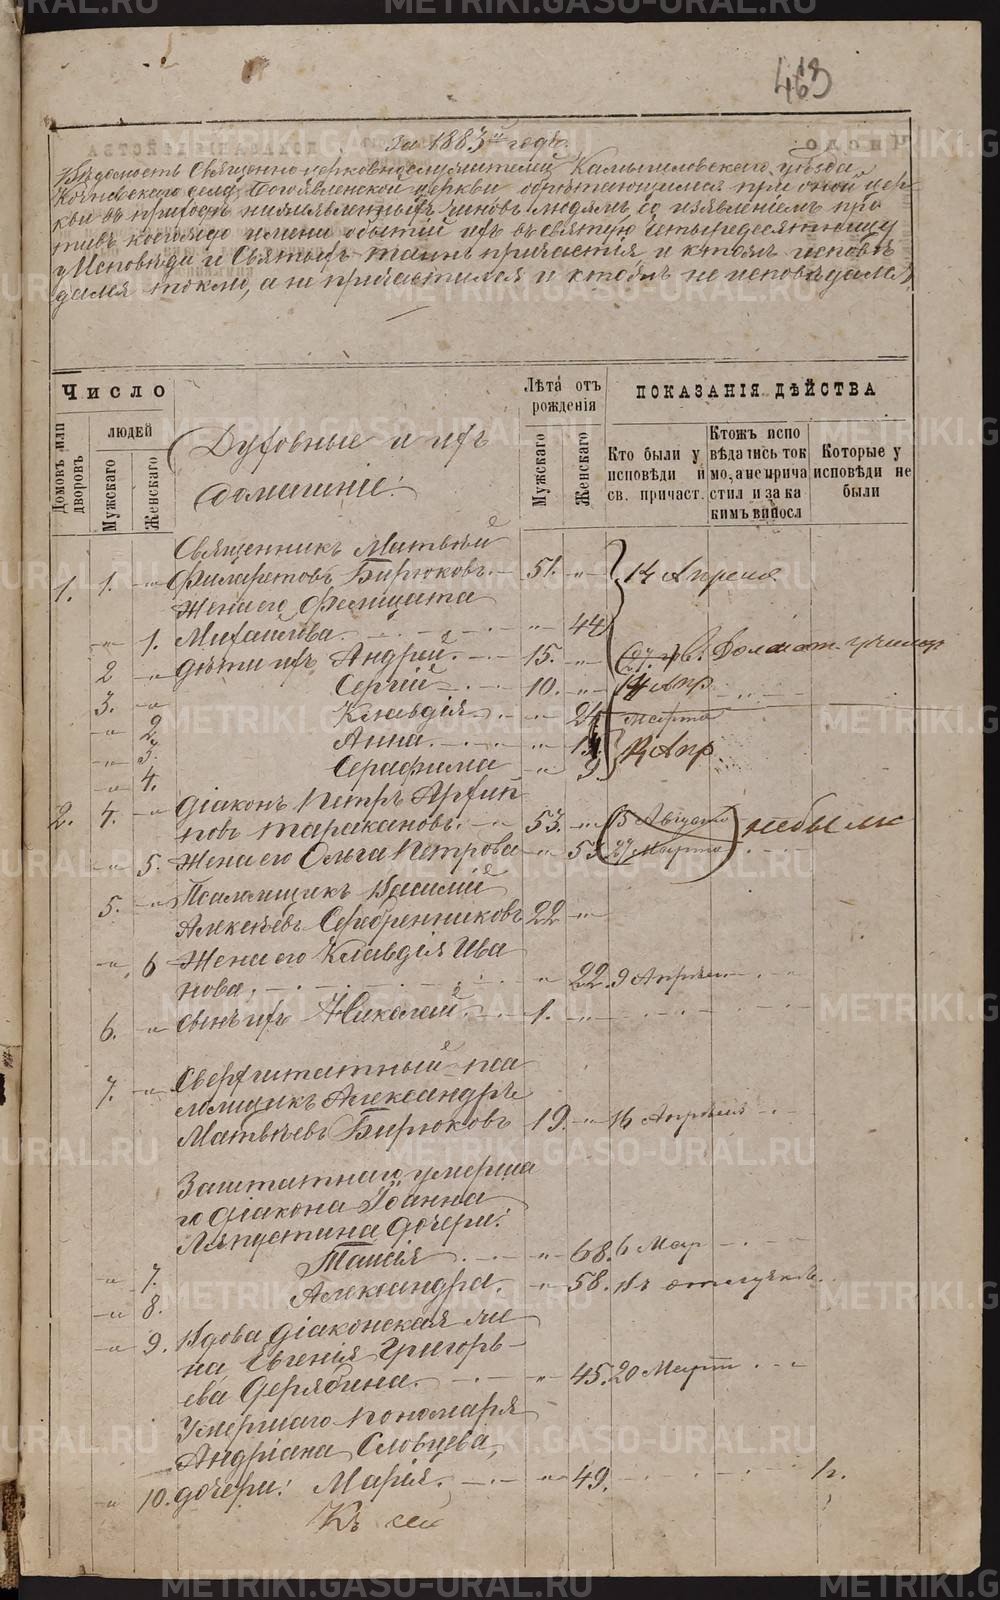 463
За 1883й годъ.
Вѣдомость Священно-церковно-служителей Камышловскаго уѣзда
Кочневскаго села Богоявленской церкви обрѣтающимся при оной цер-
кви въ приходѣ нижеявленныхъ чиновъ людямъ, со изъявленіемъ про
тивъ коегождо имени о бытіи ихъ въ святую четыредесятницу
у Исповѣди и Святыхъ таинъ причастія и ктожъ исповѣ
дался токмо, а не причастился и ктожъ не исповѣдался
Число
Лѣта отъ рожденія
ПОКАЗАНІЯ ДѢЙСТВА
Домовъ или дворовъ.
людей
Мужскаго
Женскаго
Духовные и ихъ
домашніе:
Мужскаго
Женскаго
Кто были у исповѣди и св. причаст.
Ктожъ испо вѣдались ток мо, а не прича стил и за ка кимъ винословіемъ
Которые у исповѣди не были
Священникъ Матвѣй
1. 1. -"- Филаретовъ Бирюковъ. 51. -"- 14 Апреля
Жена его Фелицата
-"- 1. Михайлова. -"- 44
2 -"- дѣти ихъ Андрей. 15. -"- Долмат. училищ
3. -"- Сергій 10. -"- 14 Апр
-"- 2. Клавдія -"- 24. марта
-"- 3. Анна. -"- 14 Апр.
-"- 4. Серафима -"- 9
2. 4. -"- Діаконъ Петръ Архип-
повъ Таракановъ. 53. -"- 15 Августа небылъ
-"- 5. Жена его Ольга Петрова -"- 53 27 Марта
5. -"- Псаломщикъ Василій
Алексѣевъ Серебренниковъ 22 -"-
-"- 6 Жена его Клавдія Ива
нова. -"- 22. 9 Апрѣля
6. -"- Сынъ ихъ Николай. 1. -"-
7. -"- Сверхштатный пса
ломщикъ Александръ
Матвѣевъ Бирюковъ 19. -"- 16 Апрѣля
Заштатнаго умерша
го діакона Іоанна
Ляпустина дочери:
-"- 7. Таисія -"- 68. 6 Мар
-"- 8. Александра. -"- 58. Въ отлучкѣ.
-"- 9. Вдова діаконская же
на Евгенія Григорь-
ева Дерябина. -"- 45. 20 Март
Умершаго пономаря
Андріана Словцева,
-"- 10. дочери: Марія. -"- 49. н.
Къ сей
METRIKI.GASO-URAL.RU